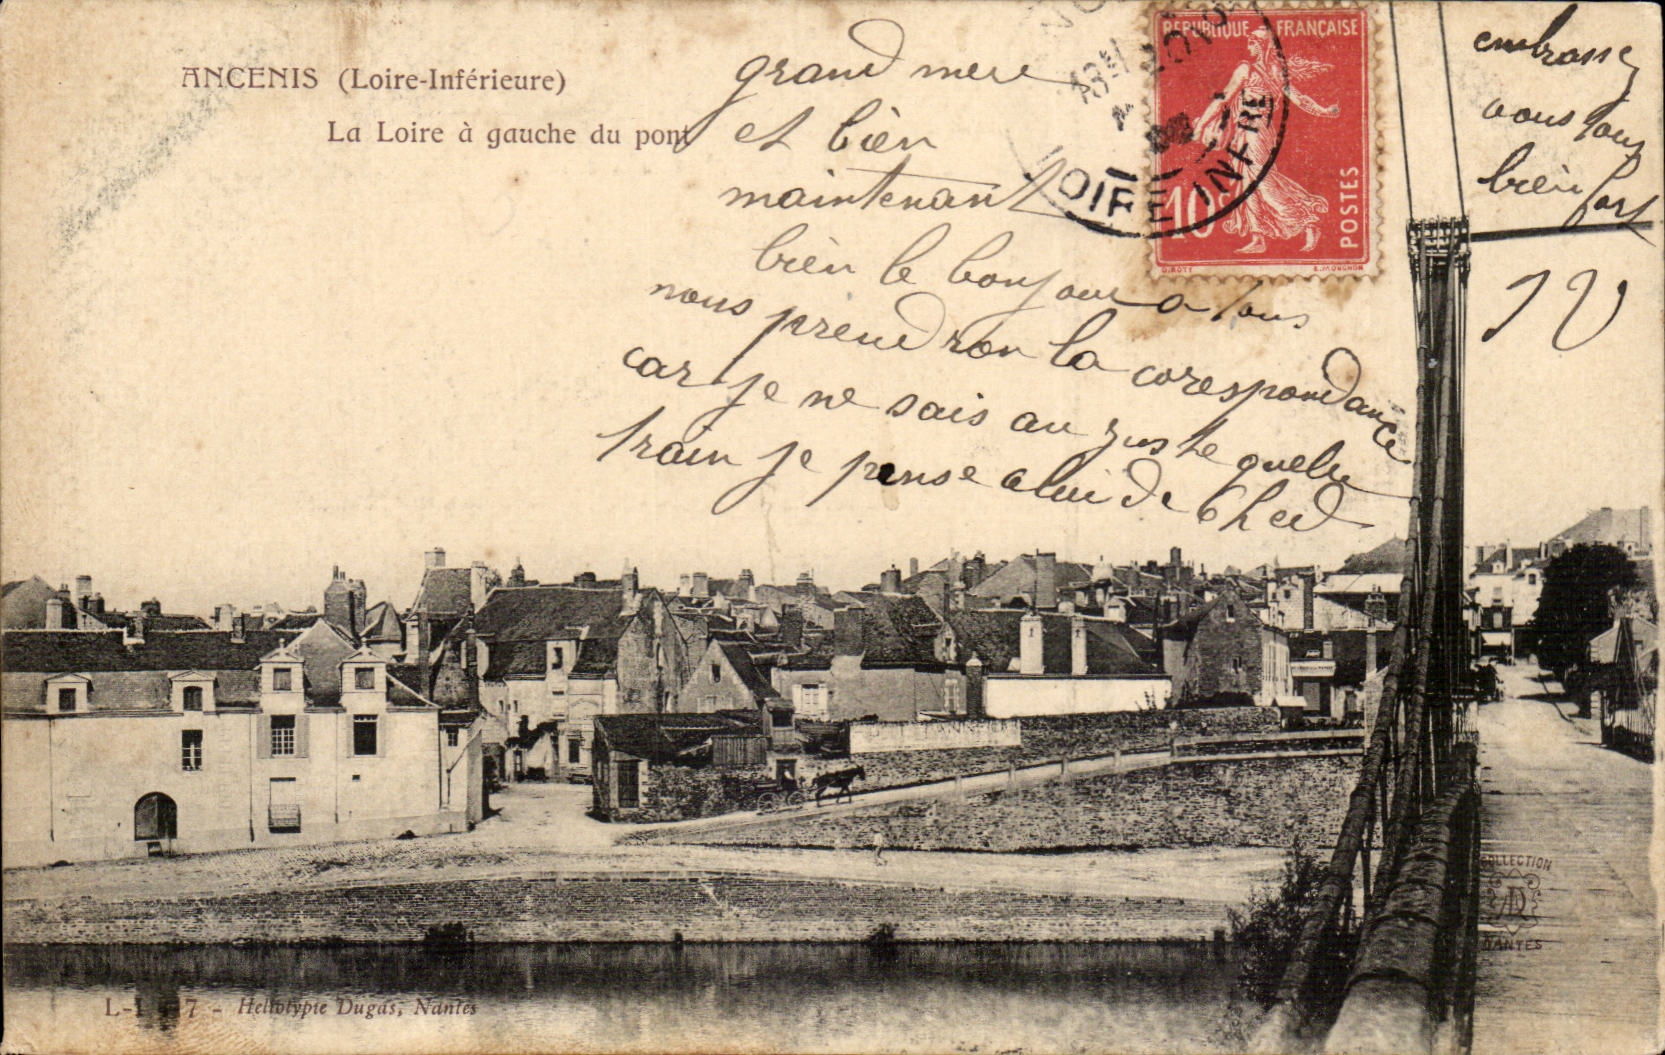 ANCENIS (Loire-Inférieure)
La Loire à gauche du pont
grand mere
et bien
maintenant
bien le bonjour a tous
nous prendron la corespondance
car je ne sais au juste quelle
train je pense a lui de 6h et d
embrasse
vous tous
bien fort
REPUBLIQUE FRANÇAISE
10c
POSTES
O.ROTY
E.MOUCHON
LOIRE INFRE
COLLECTION
NANTES
Heliotypie Dugas, Nantes